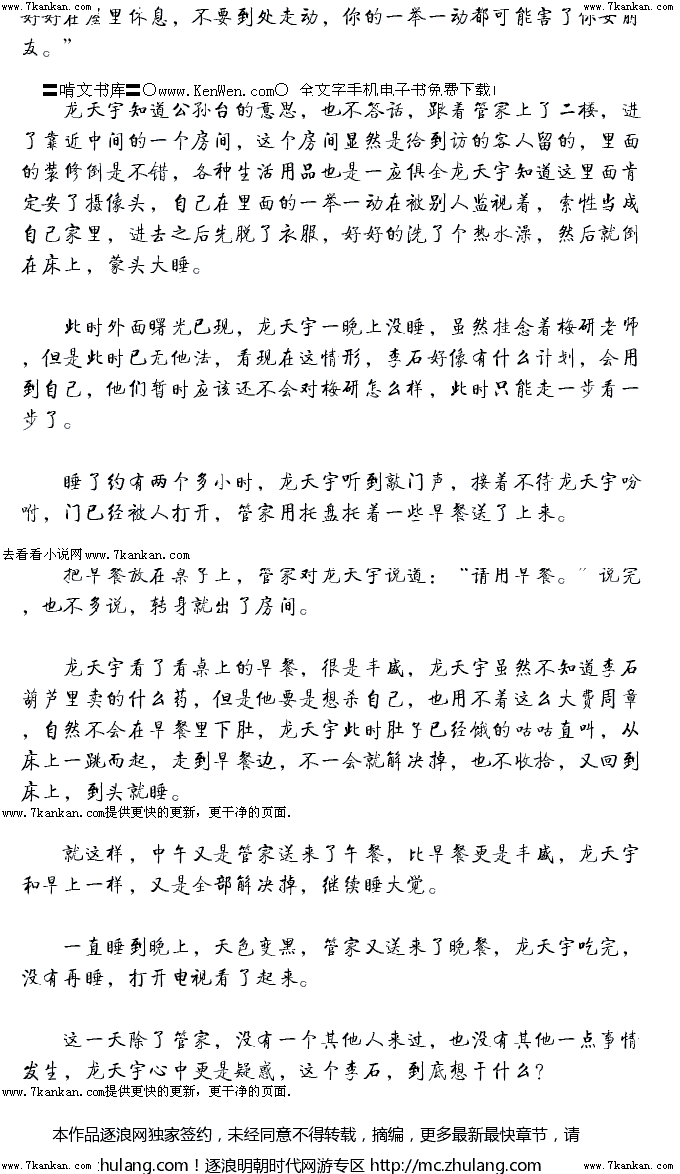 www.7kankan.com www.7kankan.com
好好在屋里休息，不要到处走动，你的一举一动都可能害了你女朋
友。”
〓啃文书库〓○www.KenWen.com○ 全文字手机电子书免费下载!
龙天宇知道公孙台的意思，也不答话，跟着管家上了二楼，进
了靠近中间的一个房间，这个房间显然是给到访的客人留的，里面
的装修倒是不错，各种生活用品也是一应俱全龙天宇知道这里面肯
定安了摄像头，自己在里面的一举一动在被别人监视着，索性当成
自己家里，进去之后先脱了衣服，好好的洗了个热水澡，然后就倒
在床上，蒙头大睡。
此时外面曙光已现，龙天宇一晚上没睡，虽然挂念着梅研老师
，但是此时已无他法，看现在这情形，李石好像有什么计划，会用
到自己，他们暂时应该还不会对梅研怎么样，此时只能走一步看一
步了。
睡了约有两个多小时，龙天宇听到敲门声，接着不待龙天宇吩
咐，门已经被人打开，管家用托盘托着一些早餐送了上来。
去看看小说网www.7kankan.com
把早餐放在桌子上，管家对龙天宇说道：“请用早餐。”说完
，也不多说，转身就出了房间。
龙天宇看了看桌上的早餐，很是丰盛，龙天宇虽然不知道李石
葫芦里卖的什么药，但是他要是想杀自己，也用不着这么大费周章
，自然不会在早餐里下肚，龙天宇此时肚子已经饿的咕咕直叫，从
床上一跳而起，走到早餐边，不一会就解决掉，也不收拾，又回到
床上，到头就睡。
www.7kankan.com提供更快的更新，更干净的页面.
就这样，中午又是管家送来了午餐，比早餐更是丰盛，龙天宇
和早上一样，又是全部解决掉，继续睡大觉。
一直睡到晚上，天色变黑，管家又送来了晚餐，龙天宇吃完，
没有再睡，打开电视看了起来。
这一天除了管家，没有一个其他人来过，也没有其他一点事情
发生，龙天宇心中更是疑惑，这个李石，到底想干什么？
www.7kankan.com提供更快的更新，更干净的页面.
本作品逐浪网独家签约，未经同意不得转载，摘编，更多最新最快章节，请
www.7kankan.com zhulang.com！逐浪明朝时代网游专区 http://mc.zhulang.com www.7kankan.com